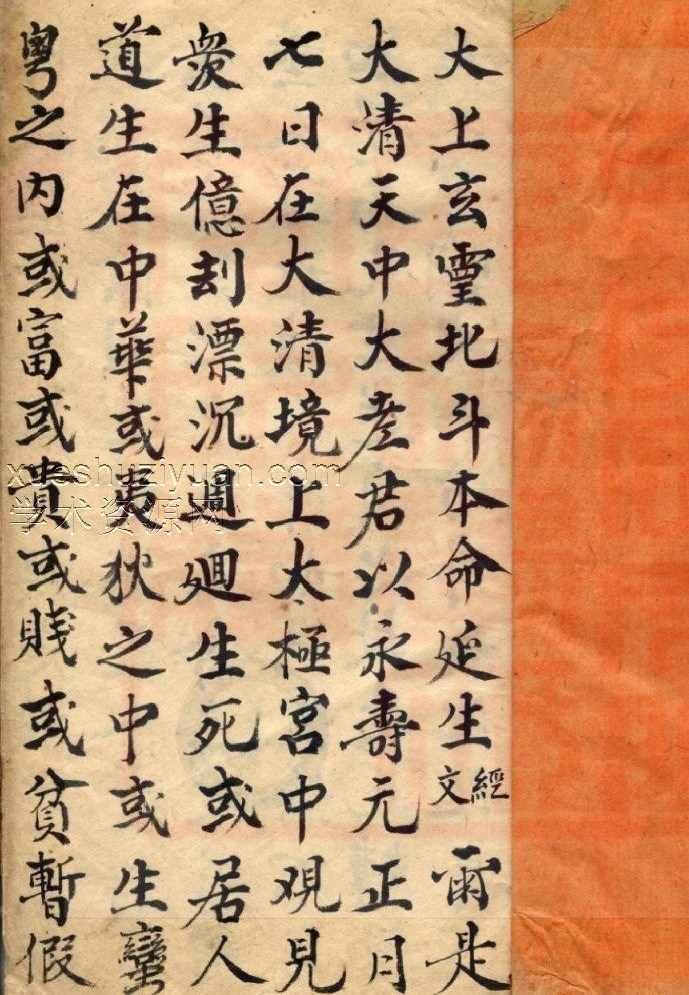 大上玄霊北斗本命延生經文 爾是
大清天中大老君以永壽元正月
七日在大清境上太極宮中观見
衆生億刦漂沉週廻生死或居人
道生在中華或夷狄之中或生蠻
粤之内或富或貴或賤或貧暫假
xueshuziyuan.com
学术资源网